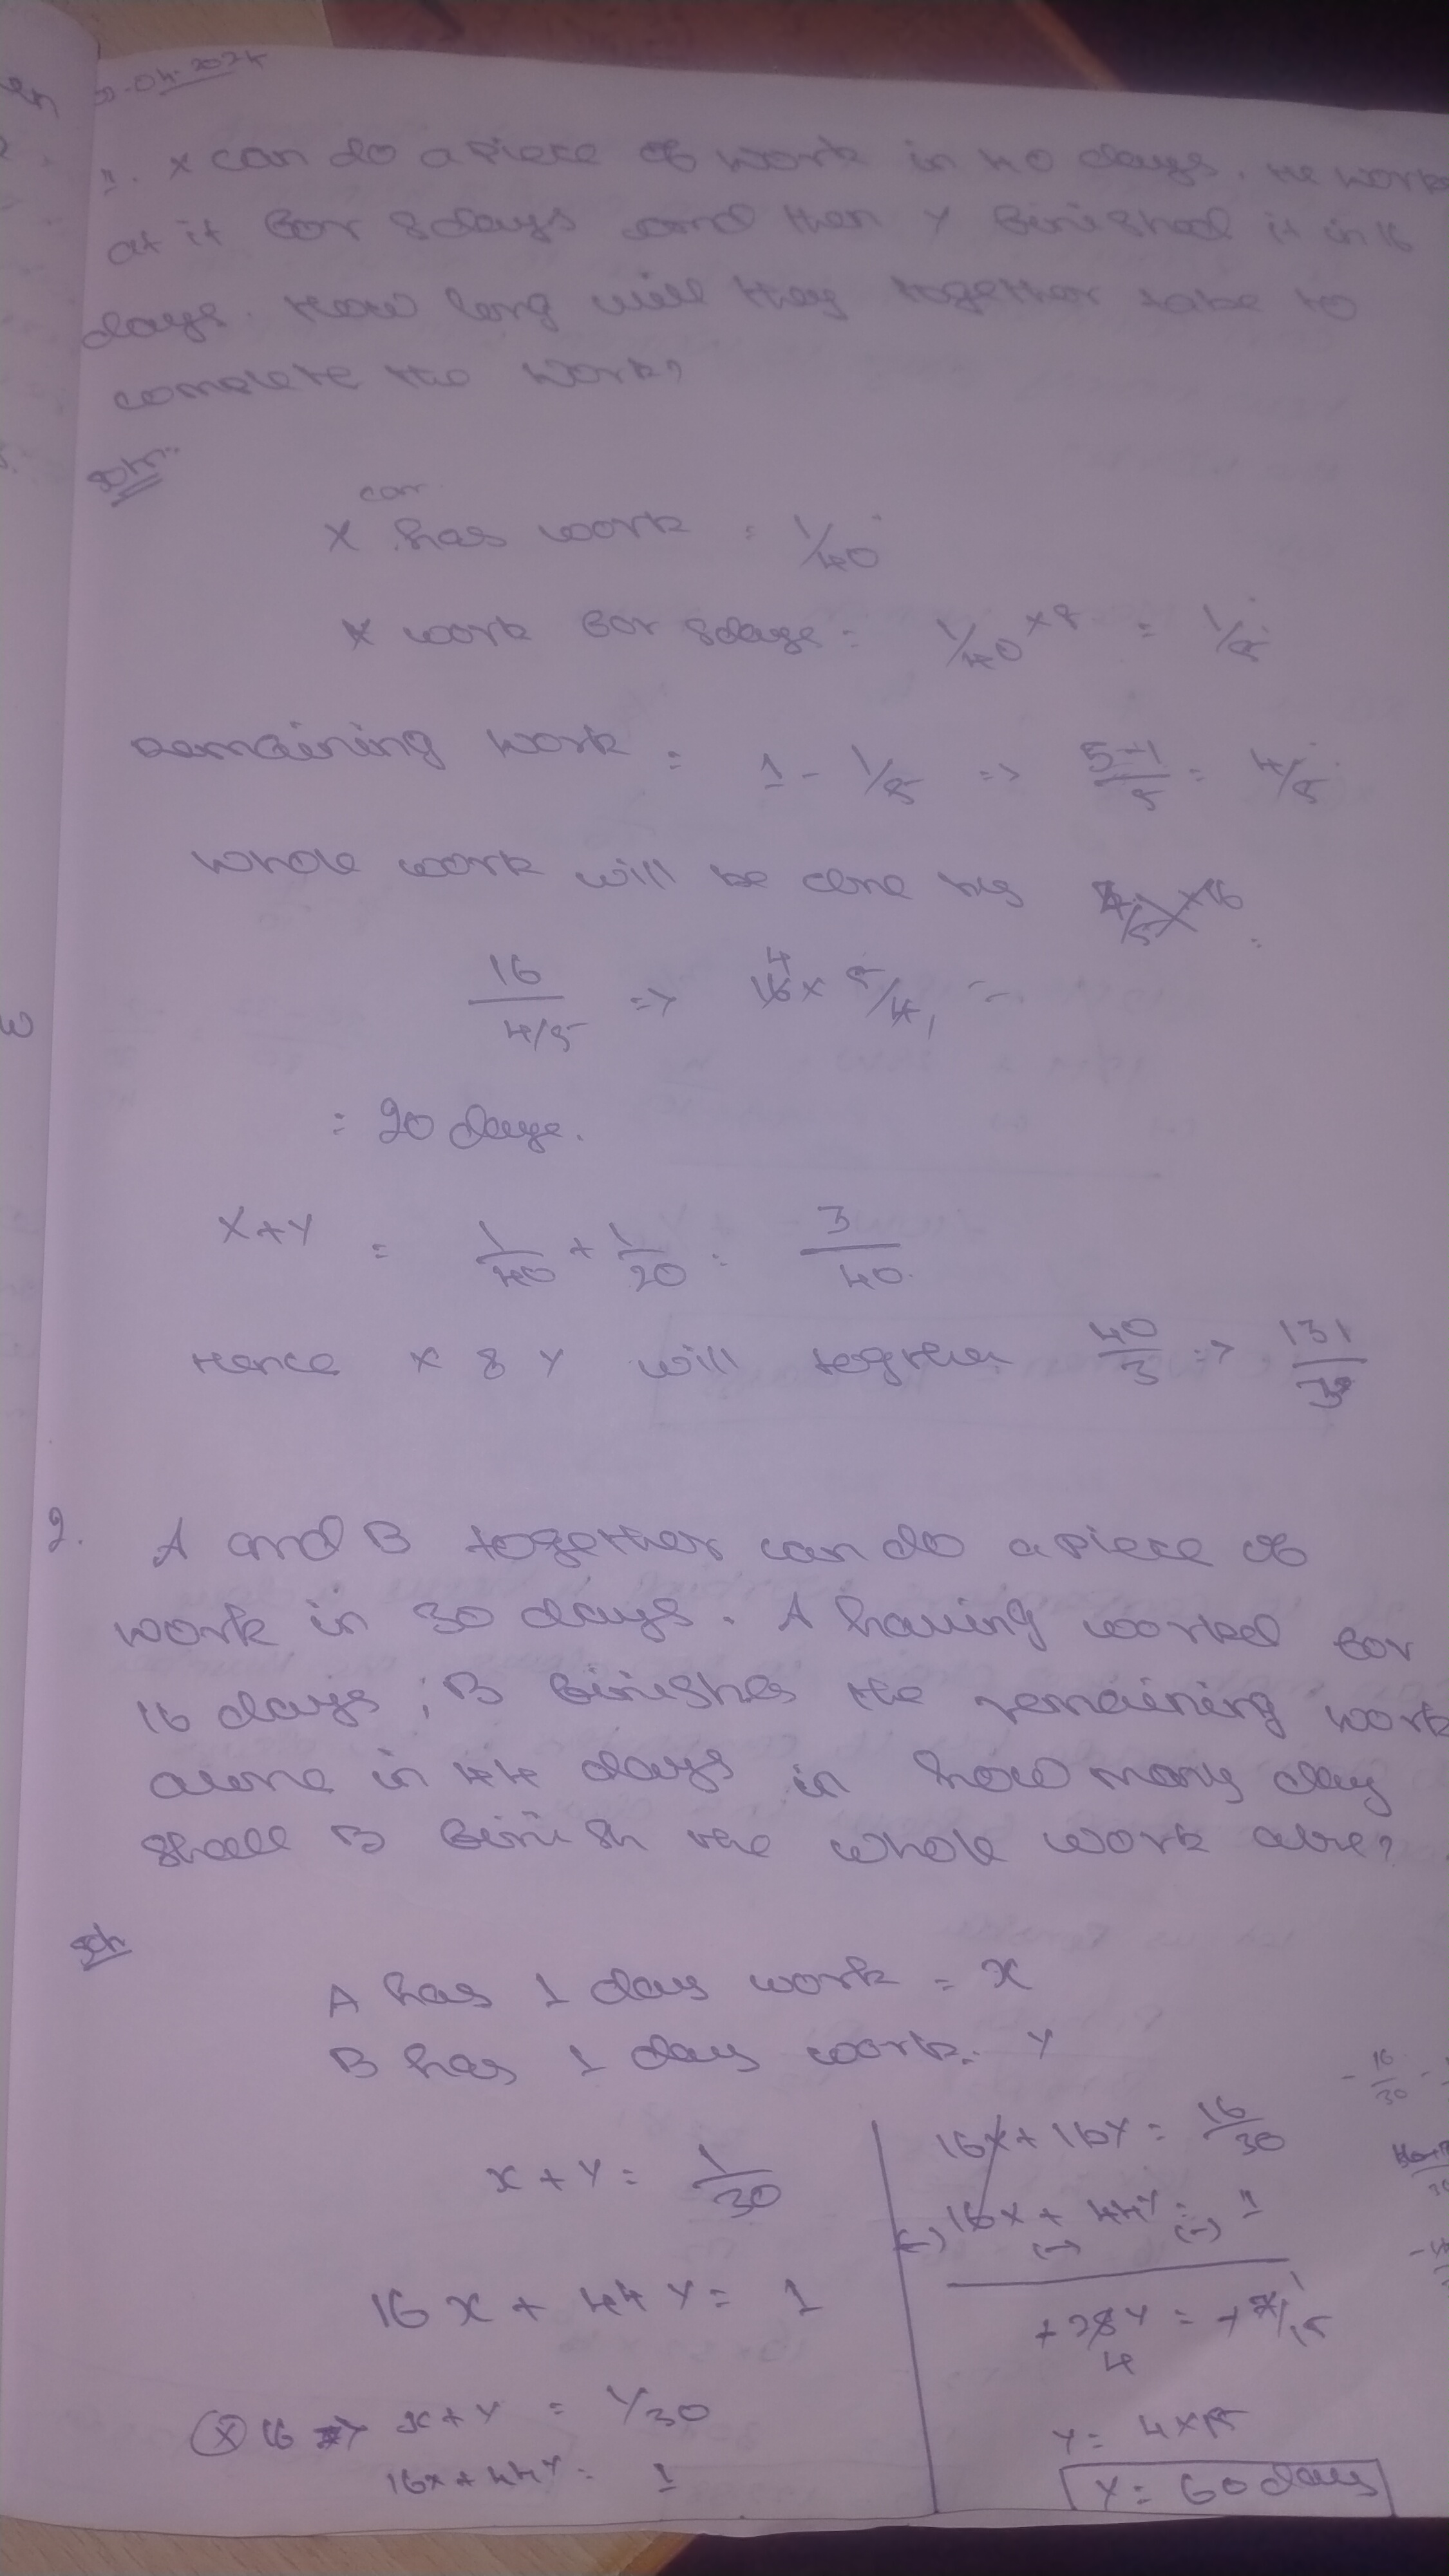 04.2024
1. X can do a piece of work in 40 days. He works
at it for 8 days and then Y finished it in 16
days. How long will they together take to
complete the work?
Soln:
can
X has work = 1/40
X work for 8 days = 1/40 x 8 = 1/5
Remaining work = 1 - 1/5 => 5-1/5 = 4/5
Whole work will be done by 4/5 x 16
16/4/5 => 16 x 5/4 =
= 20 days.
X+Y = 1/40 + 1/20 = 3/40
Hence X & Y will together 40/3 => 131/3
2. A and B together can do a piece of
work in 30 days. A having worked for
16 days, B finishes the remaining work
alone in 44 days in how many day
shall B finish the whole work alone?
Soln
A has 1 day work = x
B has 1 day work = Y
x + Y = 1/30
16x + 44Y = 1
(x) 16 => x + Y = 1/30
16x + 44Y = 1
16x + 16Y = 16/30
(-) 16x + 44Y = 1
(-) (-)
+28Y = +7/15
4
Y = 4x15
Y = 60 days
- 16/30 -